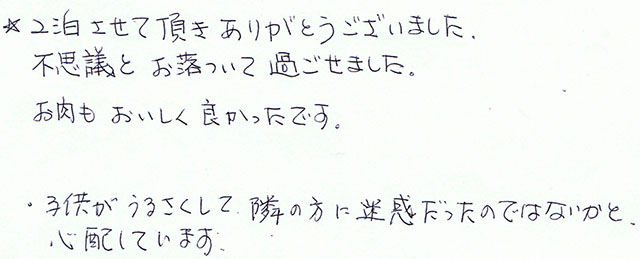 ☆2泊させて頂きありがとうございました.
不思議とお落ついて過ごせました。
お肉もおいしく良かったです。
・子供がうるさくして、隣の方に迷惑だったのではないかと、
心配しています.